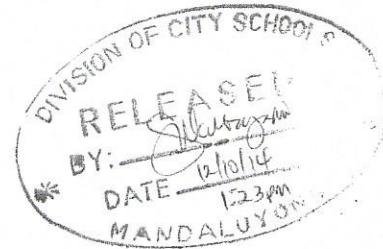 DIVISION OF CITY SCHOOLS
RELEASED
BY:
DATE 12/10/14
1:23pm
MANDALUYONG